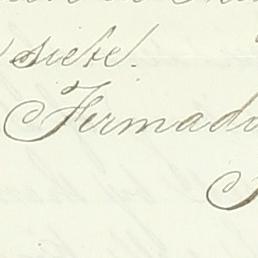 siete.
Firmado